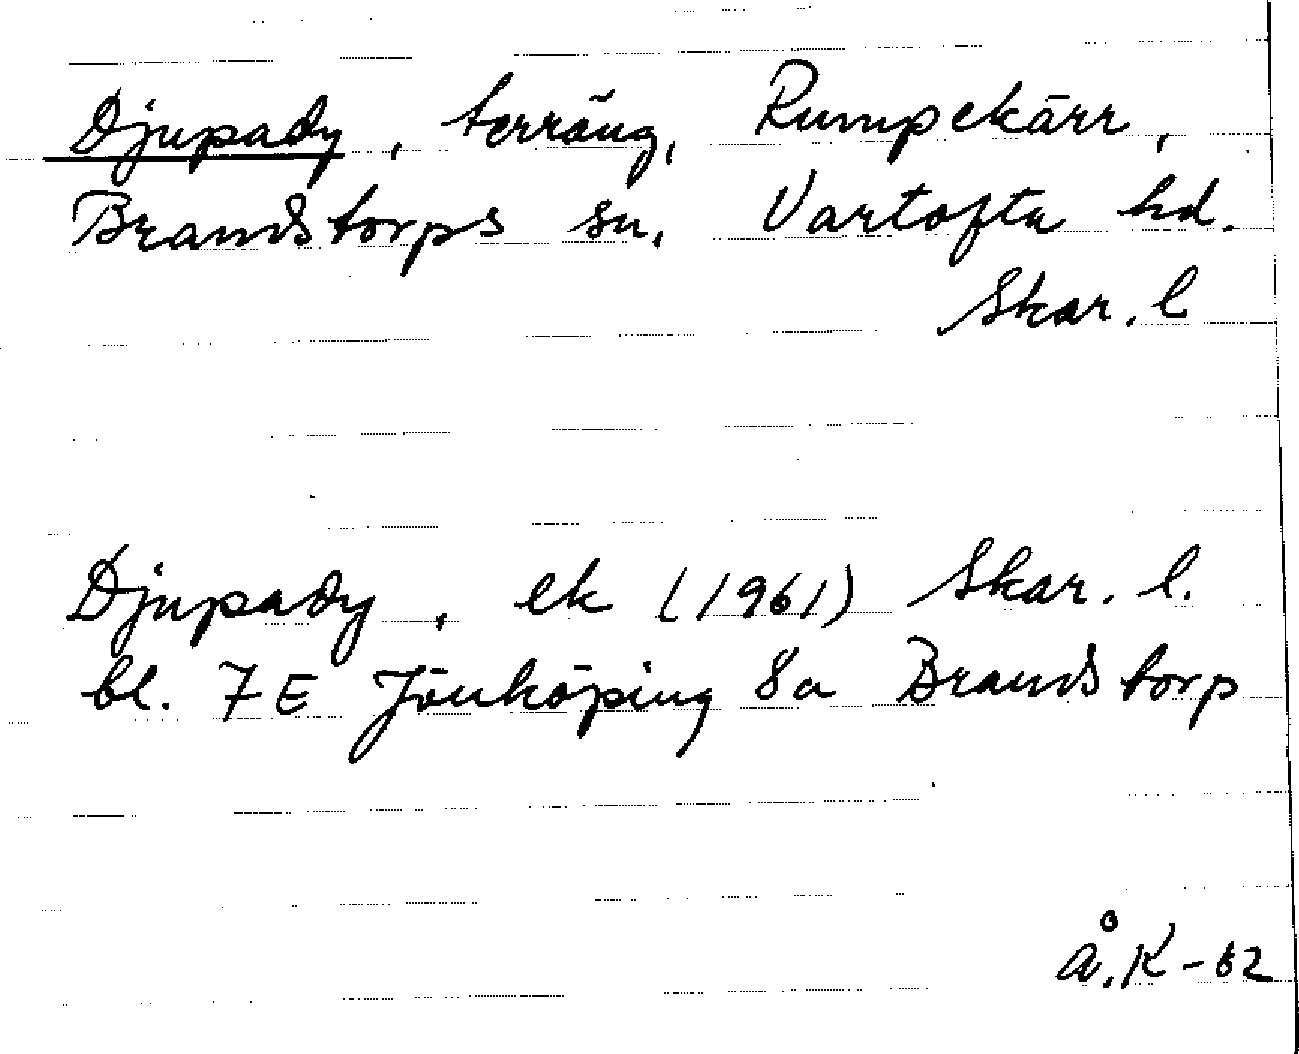 Djupady, terräng, Rumpekärr,
Brandstorps sn, Vartofta hd.
Skar. l
Djupady, ek (1961) Skar. l.
bl. 7E Jönköping 8a Brandstorp
Å.K-62